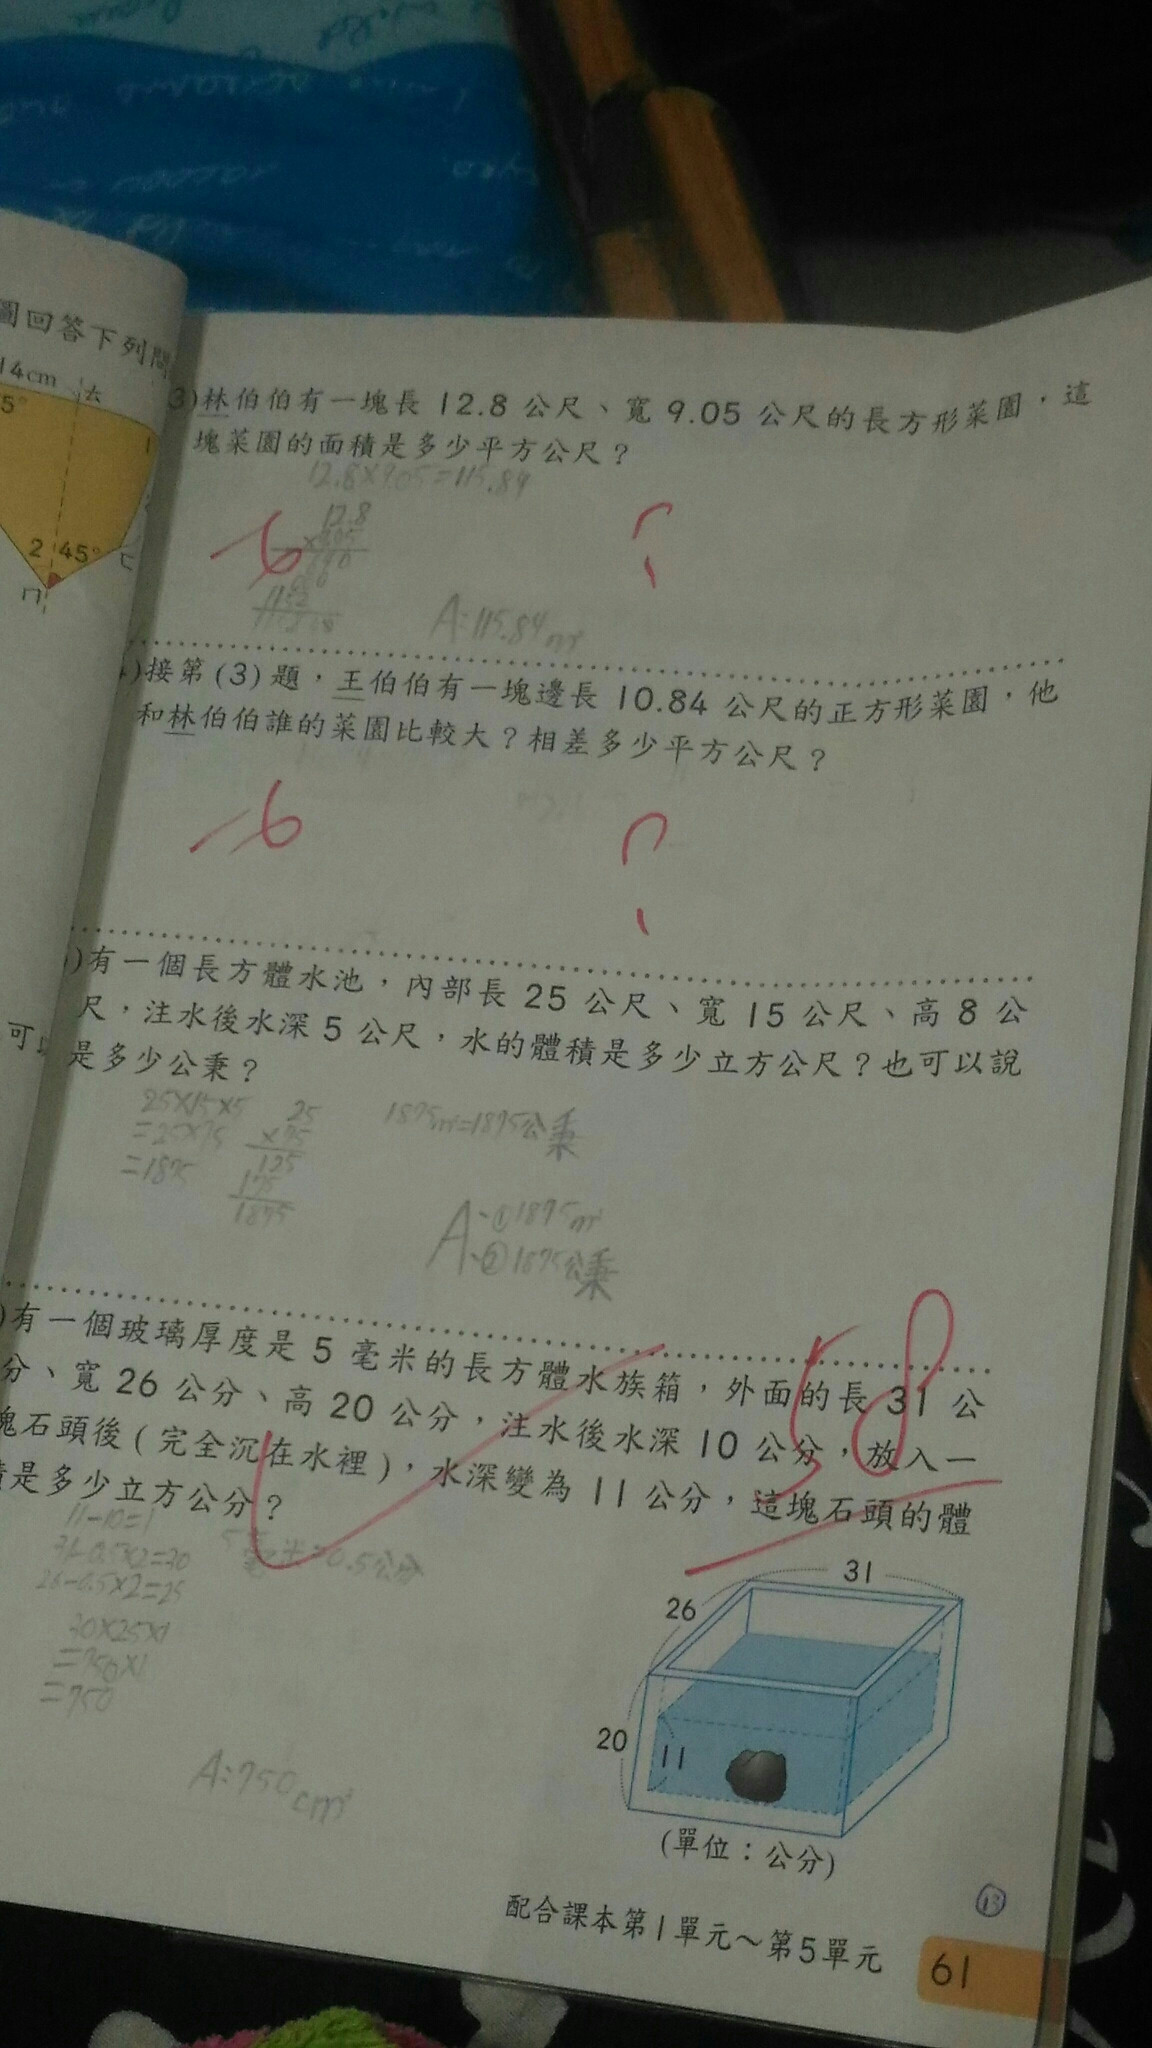 圖回答下列問
14cm
去
5°
2
45°
3)林伯伯有一塊長 12.8 公尺、寬 9.05 公尺的長方形菜園，這
塊菜園的面積是多少平方公尺？
12.8×9.05=115.84
12.8
A:115.84m²
-6
?
)接第(3)題，王伯伯有一塊邊長 10.84 公尺的正方形菜園，他
和林伯伯誰的菜園比較大？相差多少平方公尺？
-6
?
)有一個長方體水池，內部長 25 公尺、寬 15 公尺、高 8 公
尺，注水後水深 5 公尺，水的體積是多少立方公尺？也可以說
是多少公秉？
可以
25×15×5
=25×75
=1875
25
×75
125
175
1875
1875m³=1875公秉
A:①1875m³
②1875公秉
)有一個玻璃厚度是 5 毫米的長方體水族箱，外面的長 31 公
分、寬 26 公分、高 20 公分，注水後水深 10 公分，放入一
塊石頭後(完全沉在水裡)，水深變為 11 公分，這塊石頭的體
積是多少立方公分？
58
11-10=1
31-0.5×2=30
26-0.5×2=25
5毫米=0.5公分
30×25×1
=750×1
=750
A:750cm³
31
26
20
11
(單位：公分)
13
配合課本第1單元～第5單元
61